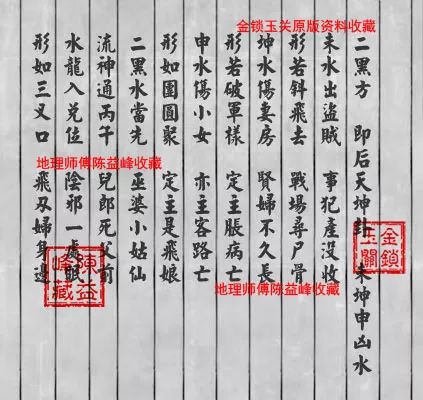 金锁玉关原版资料收藏
二黑方 即后天坤卦 未坤申凶水
未水出盜賊 事犯產没收
形若斜飛去 戰場尋尸骨
坤水傷妻房 賢婦不久長
形若破軍樣 定主脹病亡
申水傷小女 亦主客路亡
形如團圓聚 定主是飛娘
二黑水當先 巫婆小姑仙
流神通丙午 兒郎死父前
水龍入兌位 陰邪一處眠
形如三叉口 飛刃婦身邊
地理师傅陈益峰收藏
地理师傅陈益峰收藏
金鎖
玉關
陳益
峰藏